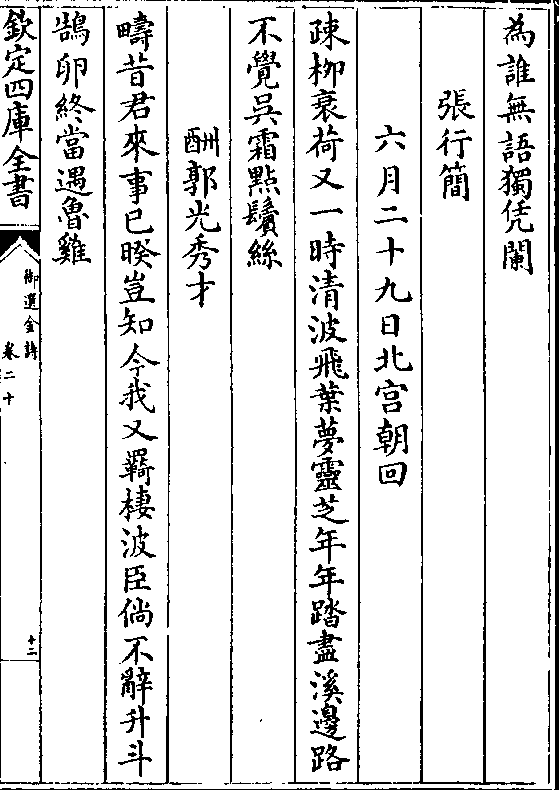 為誰無語獨凭闌
張行簡
六月二十九日北宫朝回
疎柳衰荷又一時清波飛葉夢靈芝年年踏盡溪邊路
不覺吳霜點鬢絲
酬郭光秀才
疇昔君來事已暌豈知今我又羇棲波臣倘不辭升斗
鵠卵終當遇魯雞
欽定四庫全書
御選金詩
卷二十
十二